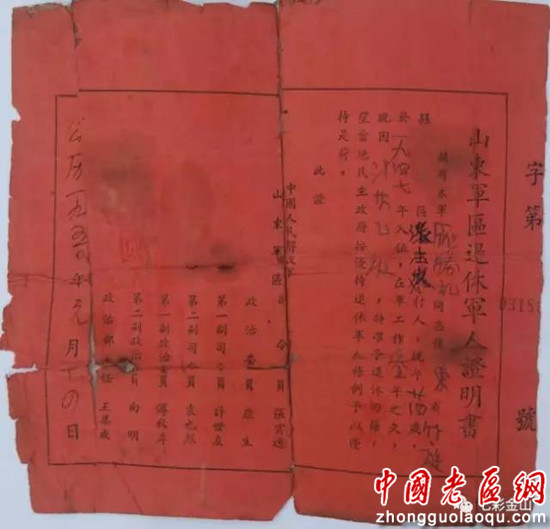 字第03158號
山東軍區退休軍人證明書
茲有本軍 同志係 東省竹庭
縣 區 村人，現年廿四歲，
於一九四七年入伍，在軍工作 年之久，
現因 ，特准予退休回籍，
望當地民主政府按優待退休軍人條例予以優
待是荷。
此證
中國人民解放軍
山東軍區司令員 張雲逸
政治委員 康生
第一副司令員 許世友
第二副司令員 袁也烈
第一副政治委員 傅秋濤
第二副政治委員 向明
政治部主任 王集成
公历一九五〇年元月十四日
中國老區網
zhongguolaoqu.com
七彩金山